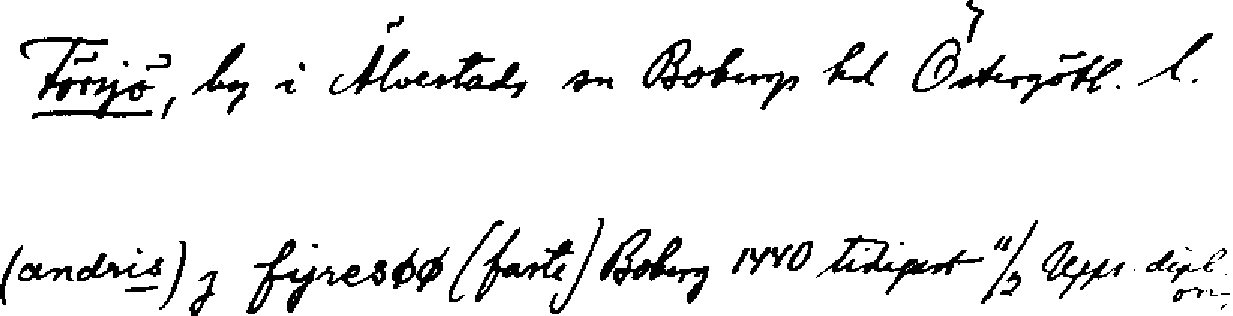 Försjö, by i Älvestads sn Bobergs hd Östergötl. l.
(andris) j fijresøø (faste) Boberg 1440 tidigast 11/2 Upps. dipl. or.